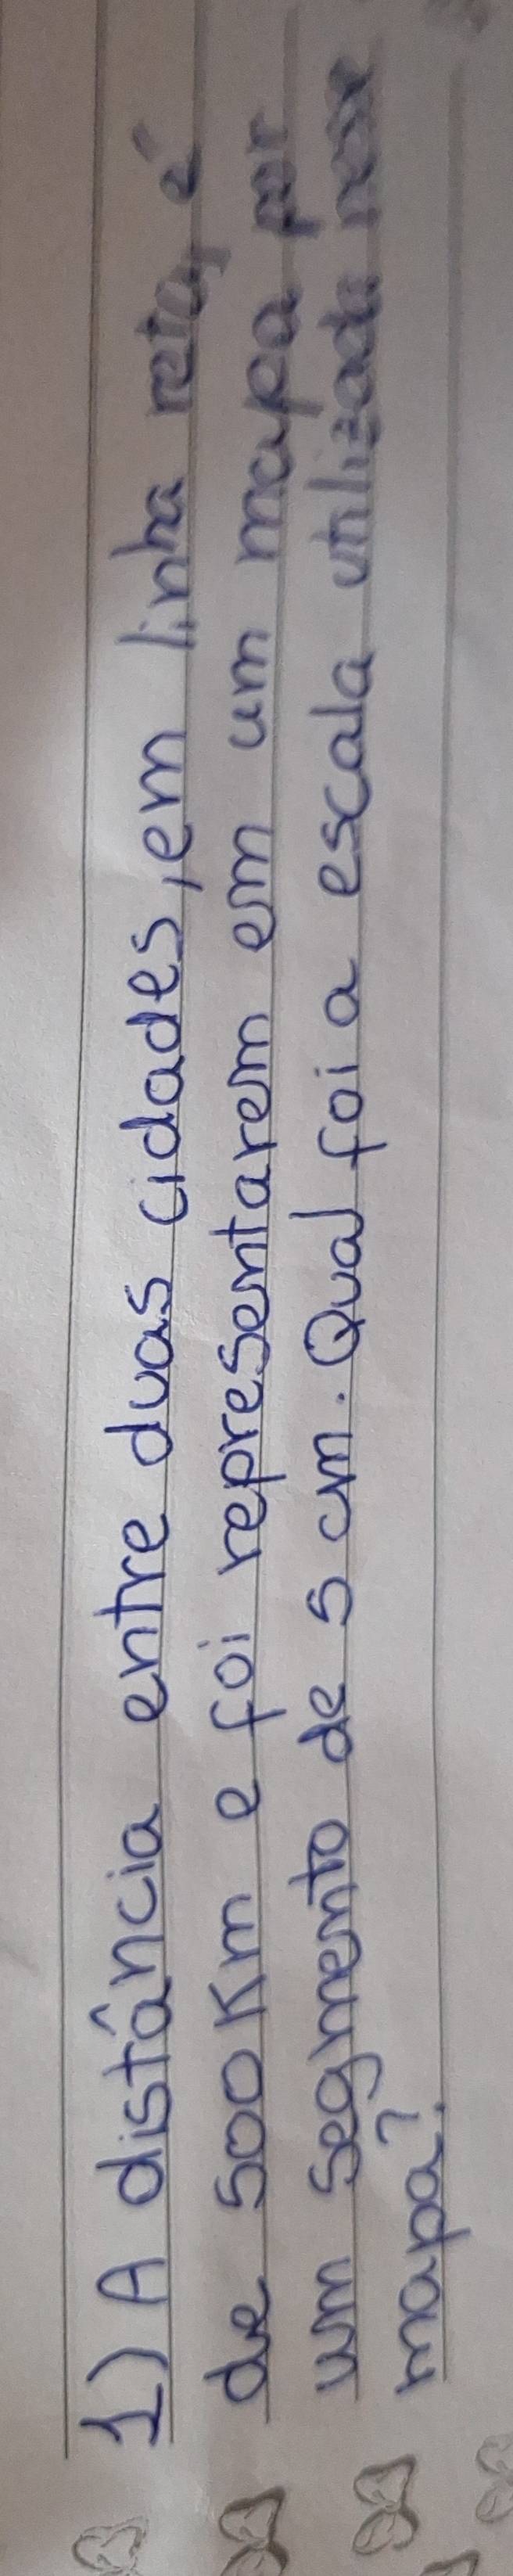 1) A distância entre duas cidades, em linha reta, é
de 500 Km e foi representarem em um mapa por
um segmento de 5 cm. Qual foi a escala utilizada
mapa?